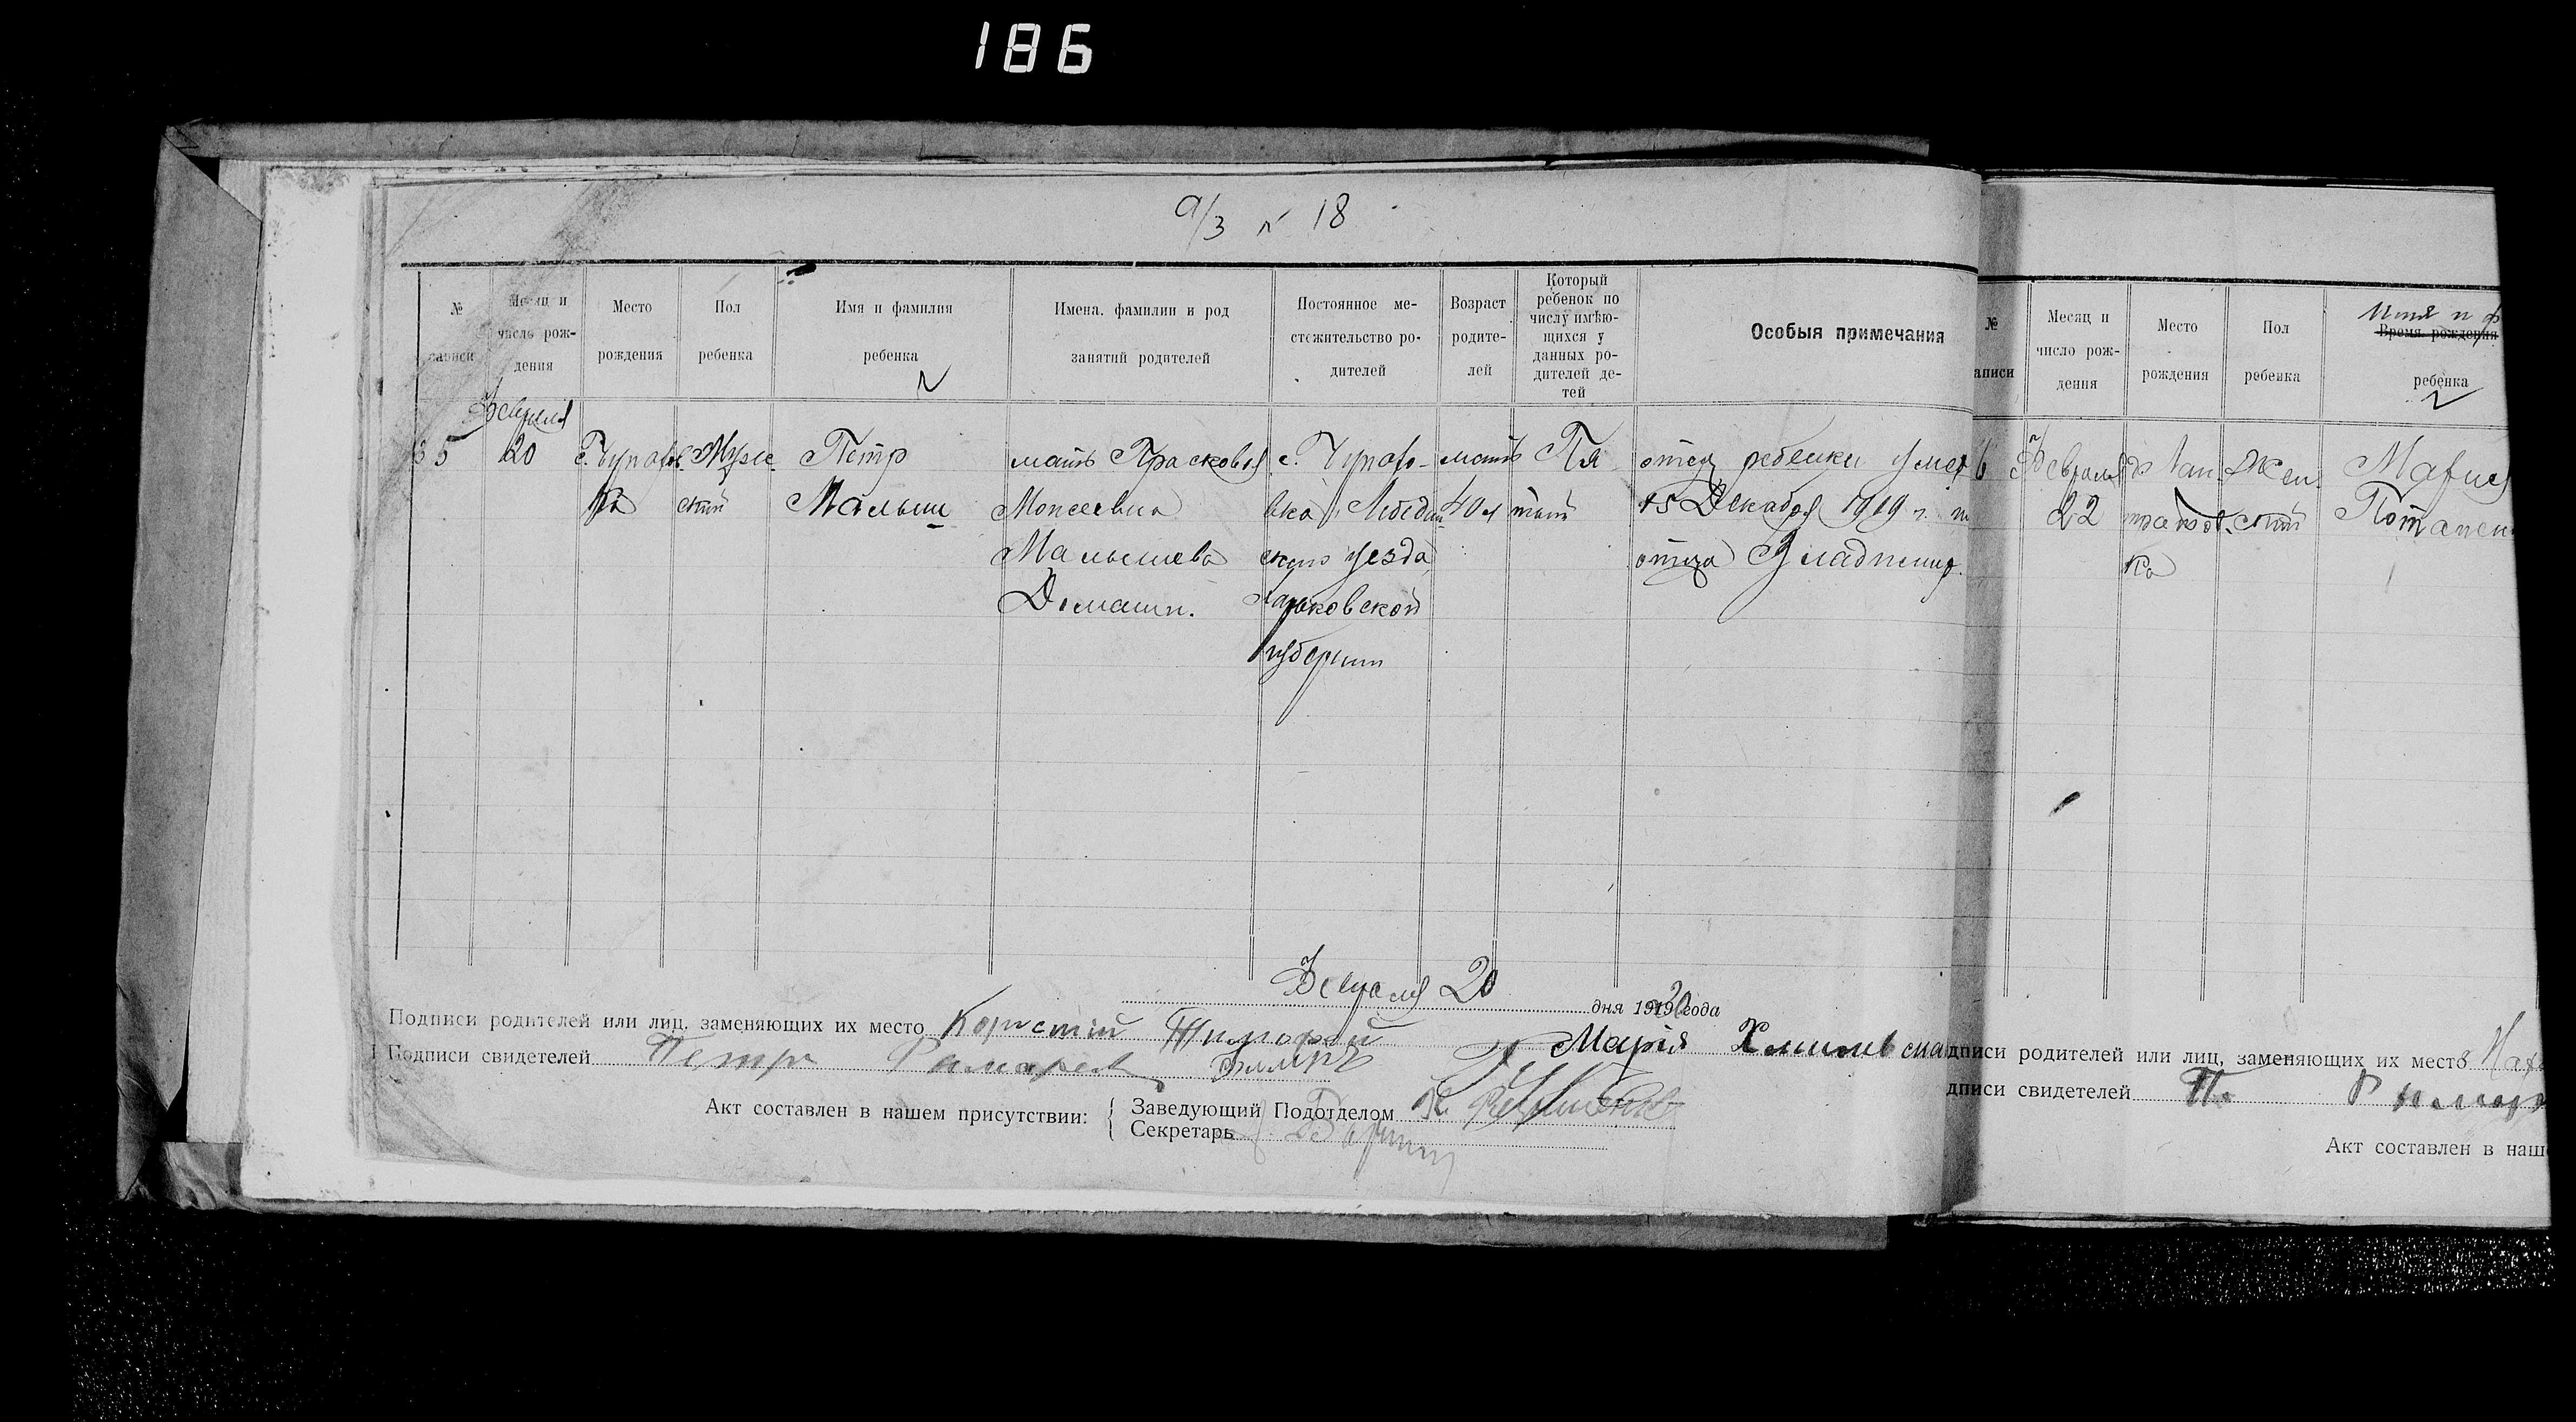 186
а/з № 18
№ записи
Месяц и число рождения
Место рождения
Пол ребенка
Имя и фамилия ребенка
Имена, фамилии и род занятий родителей
Постоянное местожительство родителей
Возраст родителей
Который ребенок по числу имѣющихся у данных родителей детей
Особыя примечания
5
Февраля
20
Муж-
ский
Петр
Малыш
мать Прасковья
Моисеевна
Малышева
Домашн.
с. Чупахо-
вка, Лебедин-
ского уезда
Харьковской
губернии
мать
40 л
Пя-
тый
отец ребенка умер
15 Декабря 1919 г.
отца Владимир
Февраля 20 дня 1920 года
Подписи родителей или лиц, заменяющих их место
Тимофей
Подписи свидетелей Петр
Марія
Акт составлен в нашем присутствии:
Заведующий Подотделом
Секретарь
№
аписи
Месяц и число рождения
Место рождения
Пол ребенка
Имя и ф
Время рождения
ребенка
6
Февраля
22
Жен-
ский
Мария
Потапен
дписи родителей или лиц, заменяющих их место
дписи свидетелей
Акт составлен в наш